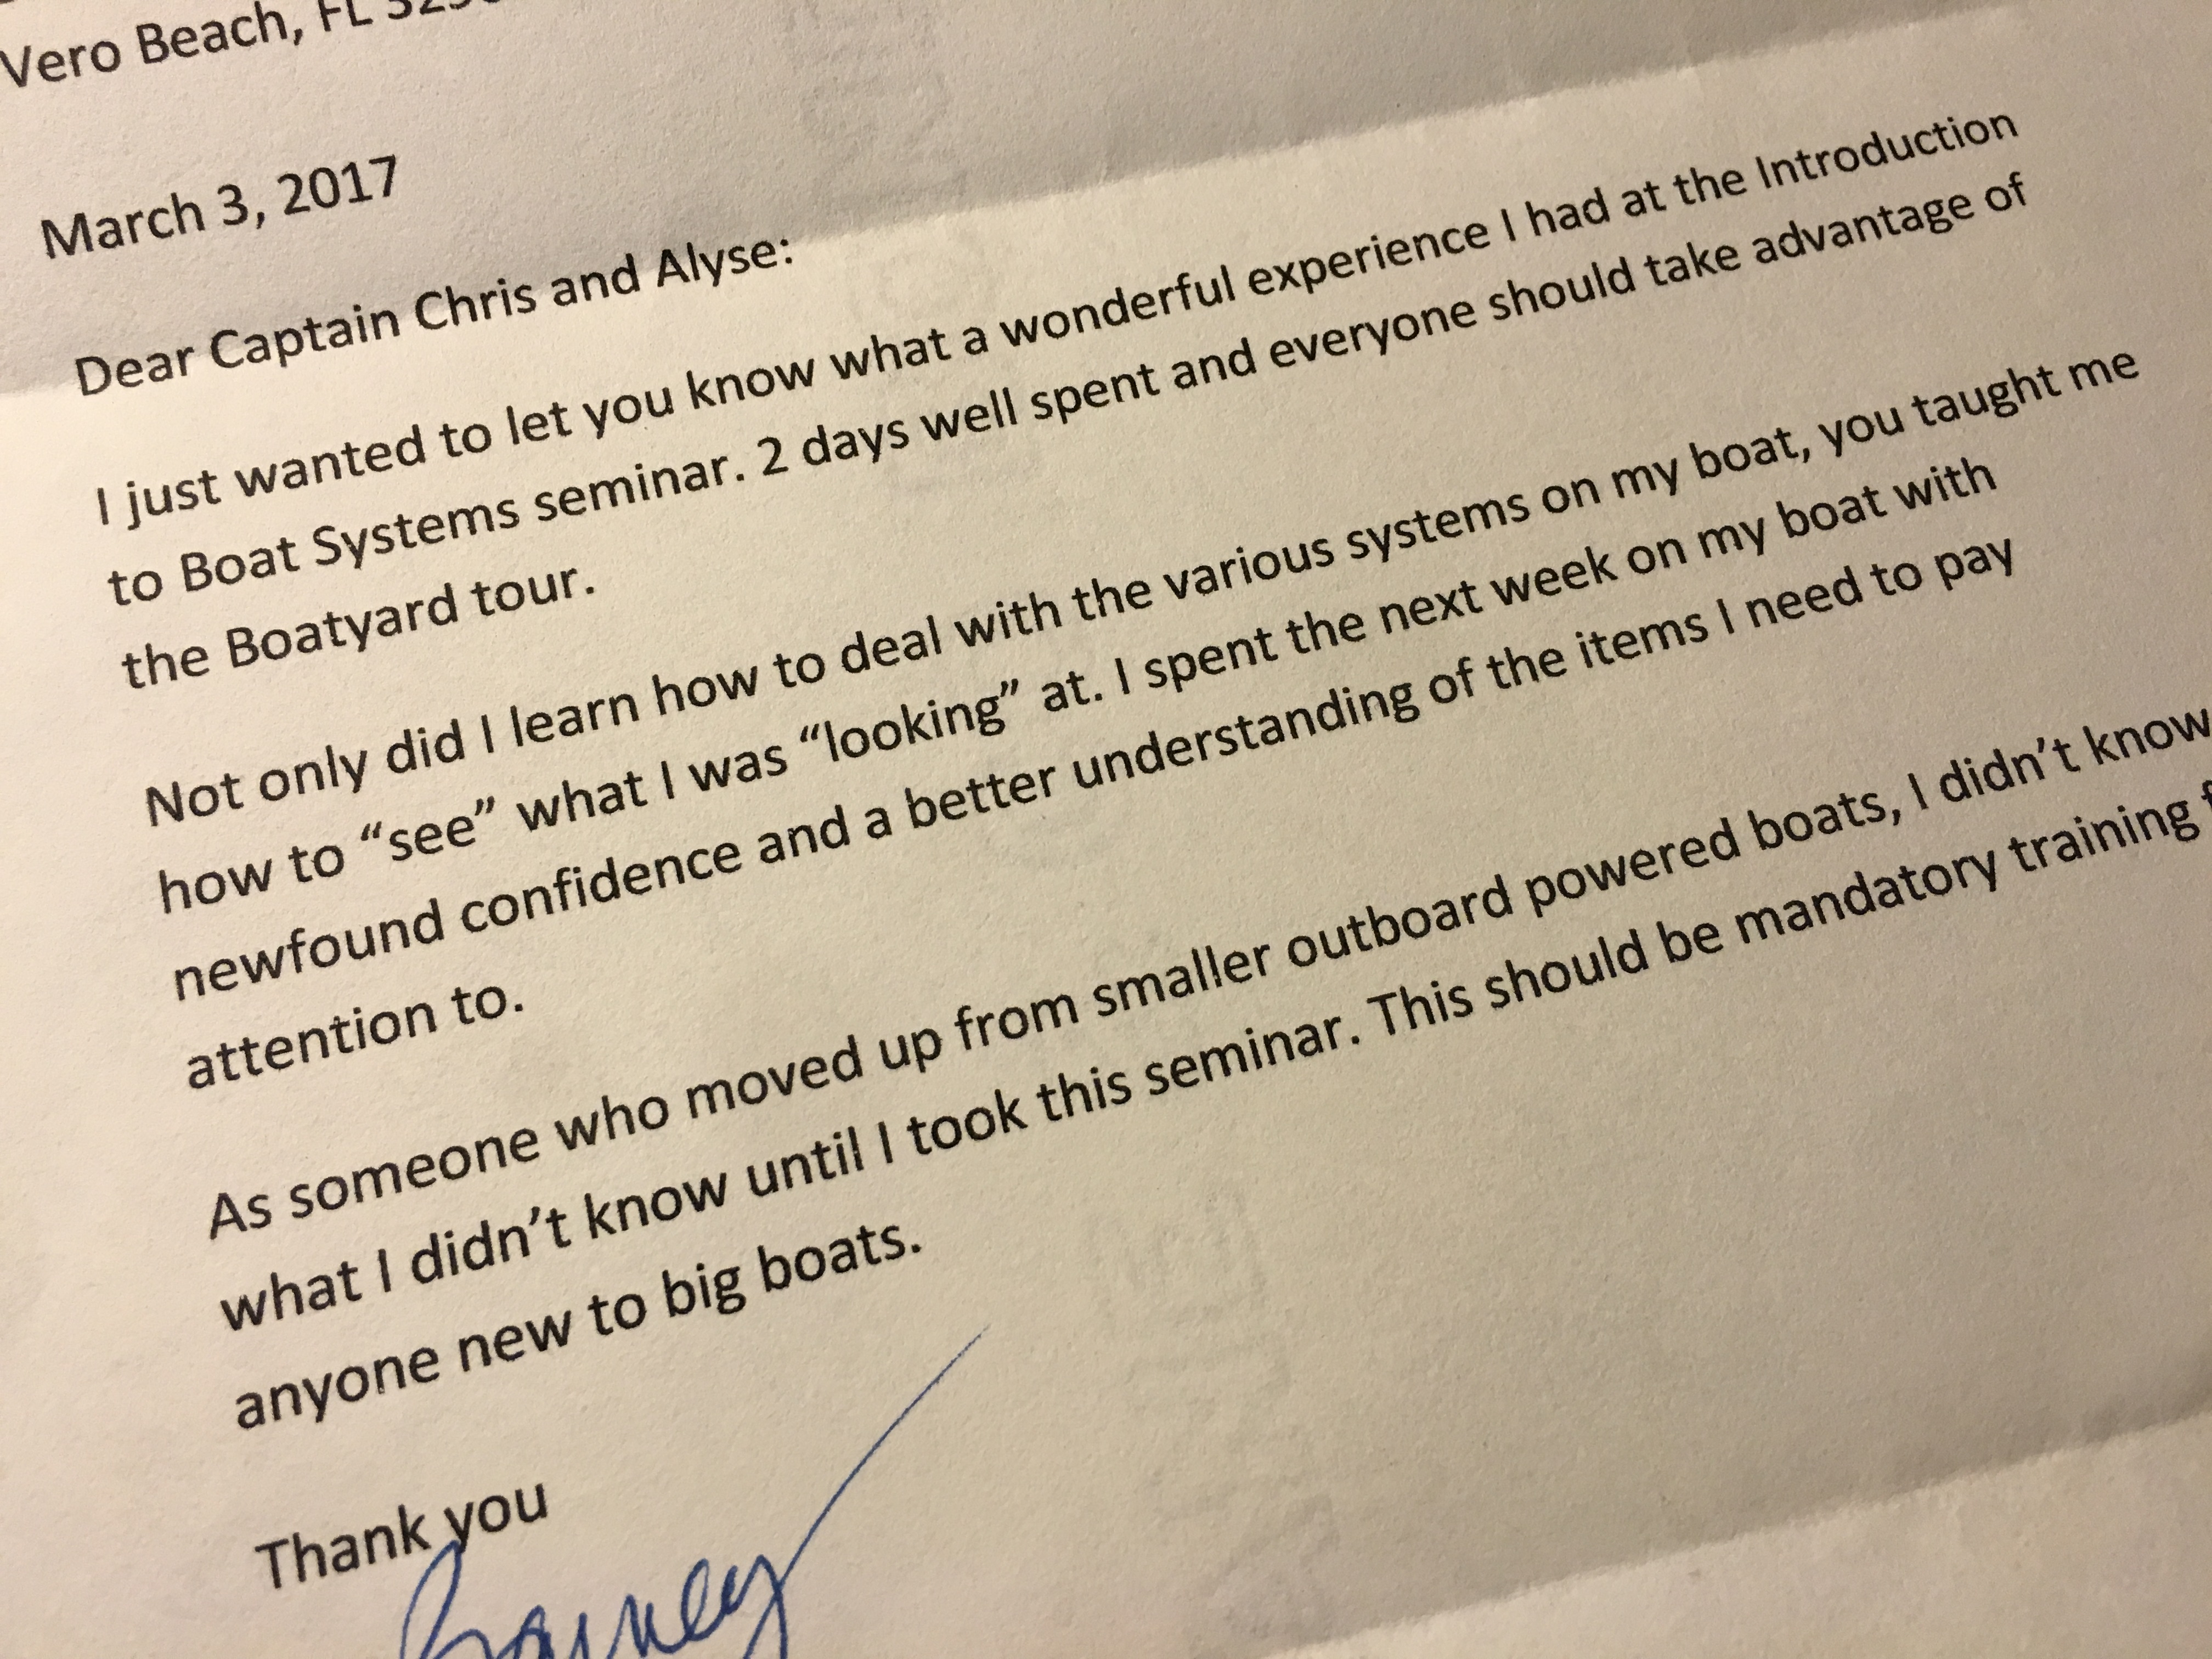 Vero Beach, FL
March 3, 2017
Dear Captain Chris and Alyse:
I just wanted to let you know what a wonderful experience I had at the Introduction
to Boat Systems seminar. 2 days well spent and everyone should take advantage of
the Boatyard tour.
Not only did I learn how to deal with the various systems on my boat, you taught me
how to “see” what I was “looking” at. I spent the next week on my boat with
newfound confidence and a better understanding of the items I need to pay
attention to.
As someone who moved up from smaller outboard powered boats, I didn’t know
what I didn’t know until I took this seminar. This should be mandatory training
anyone new to big boats.
Thank you